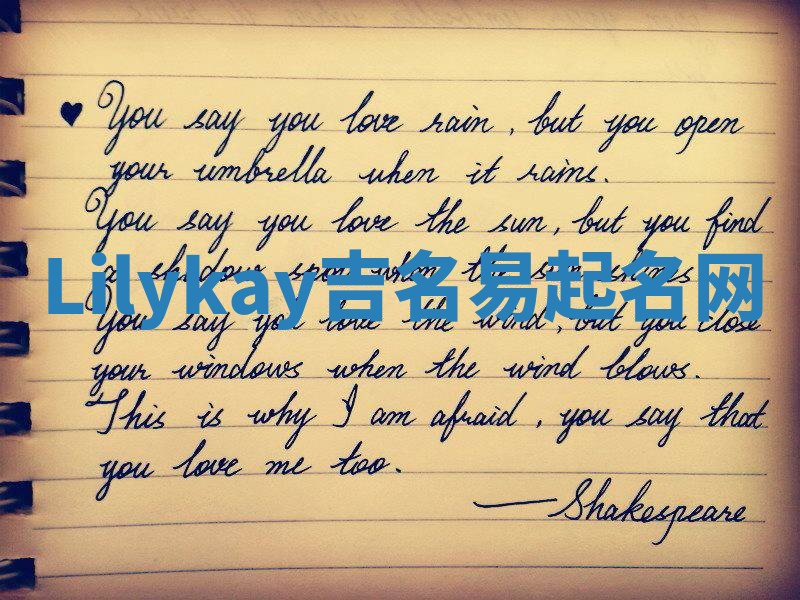 ♥ You say you love rain, but you open
your umbrella when it rains.
You say you love the sun, but you find
a shadow spot when the sun shines
Lilykay吉名易起名网
You say you love the wind, but you close
your windows when the wind blows.
This is why I am afraid, you say that
you love me too.
— Shakespeare